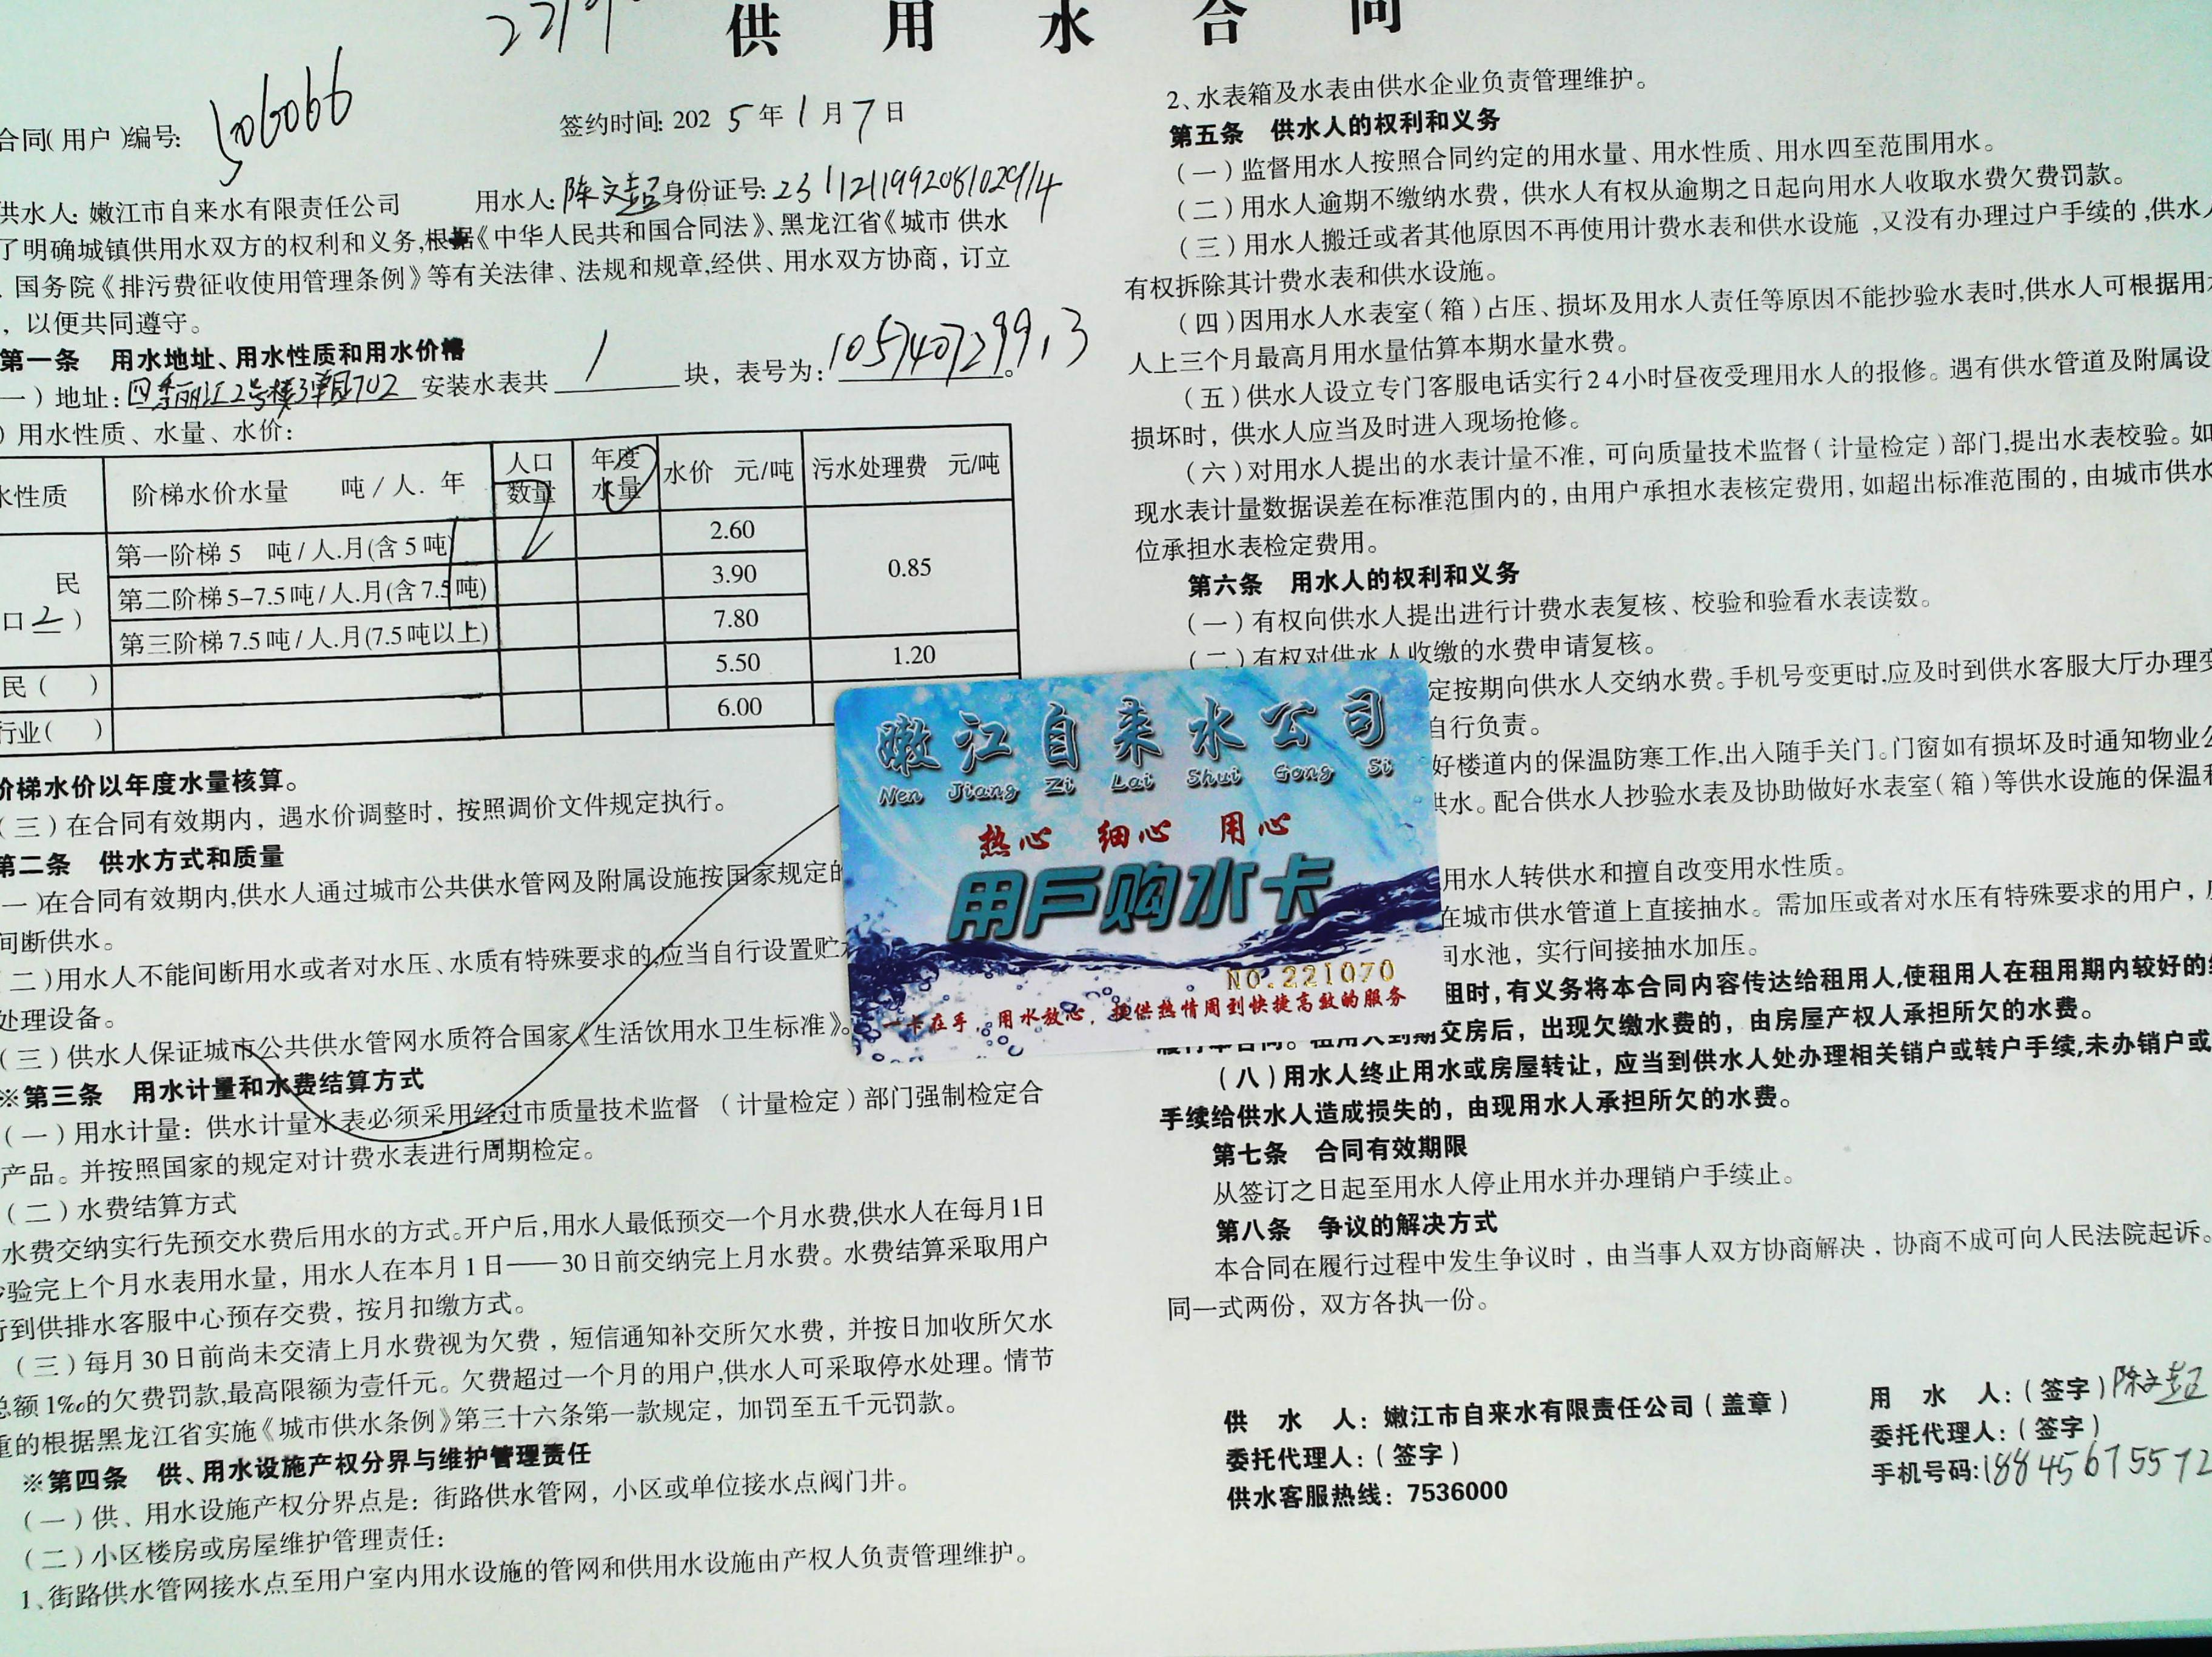 供用水合同
合同(用户)编号:
签约时间: 2025年1月7日
供水人: 嫩江市自来水有限责任公司 用水人: 陈文 身份证号:
了明确城镇供用水双方的权利和义务,根据《中华人民共和国合同法》、黑龙江省《城市 供水
、国务院《排污费征收使用管理条例》等有关法律、法规和规章,经供、用水双方协商，订立
，以便共同遵守。
第一条 用水地址、用水性质和用水价格
一)地址: 四季丽江2号楼3单元702 安装水表共 1 块，表号为:
)用水性质、水量、水价:
水性质 阶梯水价水量 吨/人. 年 人口数量 年度水量 水价 元/吨 污水处理费 元/吨
民
口2)
第一阶梯5 吨/人.月(含5吨) 2.60 0.85
第二阶梯5-7.5吨/人.月(含7.5吨) 3.90
第三阶梯7.5吨/人.月(7.5吨以上) 7.80
民( ) 5.50 1.20
行业( ) 6.00
阶梯水价以年度水量核算。
(三)在合同有效期内，遇水价调整时，按照调价文件规定执行。
第二条 供水方式和质量
一)在合同有效期内,供水人通过城市公共供水管网及附属设施按国家规定的
间断供水。
(二)用水人不能间断用水或者对水压、水质有特殊要求的,应当自行设置贮水
处理设备。
(三)供水人保证城市公共供水管网水质符合国家《生活饮用水卫生标准》。
※第三条 用水计量和水费结算方式
(一)用水计量：供水计量水表必须采用经过市质量技术监督 (计量检定)部门强制检定合
产品。并按照国家的规定对计费水表进行周期检定。
(二)水费结算方式
水费交纳实行先预交水费后用水的方式。开户后,用水人最低预交一个月水费,供水人在每月1日
验完上个月水表用水量，用水人在本月1日——30日前交纳完上月水费。水费结算采取用户
行到供排水客服中心预存交费，按月扣缴方式。
(三)每月30日前尚未交清上月水费视为欠费，短信通知补交所欠水费，并按日加收所欠水
总额1‰的欠费罚款,最高限额为壹仟元。欠费超过一个月的用户,供水人可采取停水处理。情节
重的根据黑龙江省实施《城市供水条例》第三十六条第一款规定，加罚至五千元罚款。
※第四条 供、用水设施产权分界与维护管理责任
(一)供、用水设施产权分界点是：街路供水管网，小区或单位接水点阀门井。
(二)小区楼房或房屋维护管理责任:
1、街路供水管网接水点至用户室内用水设施的管网和供用水设施由产权人负责管理维护。
2、水表箱及水表由供水企业负责管理维护。
第五条 供水人的权利和义务
(一)监督用水人按照合同约定的用水量、用水性质、用水四至范围用水。
(二)用水人逾期不缴纳水费，供水人有权从逾期之日起向用水人收取水费欠费罚款。
(三)用水人搬迁或者其他原因不再使用计费水表和供水设施，又没有办理过户手续的,供水人
有权拆除其计费水表和供水设施。
(四)因用水人水表室(箱)占压、损坏及用水人责任等原因不能抄验水表时,供水人可根据用水
人上三个月最高月用水量估算本期水量水费。
(五)供水人设立专门客服电话实行24小时昼夜受理用水人的报修。遇有供水管道及附属设
损坏时，供水人应当及时进入现场抢修。
(六)对用水人提出的水表计量不准，可向质量技术监督(计量检定)部门,提出水表校验。如
现水表计量数据误差在标准范围内的，由用户承担水表核定费用，如超出标准范围的，由城市供水
位承担水表检定费用。
第六条 用水人的权利和义务
(一)有权向供水人提出进行计费水表复核、校验和验看水表读数。
(二)有权对供水人收缴的水费申请复核。
定按期向供水人交纳水费。手机号变更时,应及时到供水客服大厅办理变
自行负责。
好楼道内的保温防寒工作,出入随手关门。门窗如有损坏及时通知物业公
供水。配合供水人抄验水表及协助做好水表室(箱)等供水设施的保温和
用水人转供水和擅自改变用水性质。
在城市供水管道上直接抽水。需加压或者对水压有特殊要求的用户，应
间水池，实行间接抽水加压。
租时,有义务将本合同内容传达给租用人,使租用人在租用期内较好的
履行本合同。租用人到期交房后，出现欠缴水费的，由房屋产权人承担所欠的水费。
(八)用水人终止用水或房屋转让，应当到供水人处办理相关销户或转户手续,未办销户或
手续给供水人造成损失的，由现用水人承担所欠的水费。
第七条 合同有效期限
从签订之日起至用水人停止用水并办理销户手续止。
第八条 争议的解决方式
本合同在履行过程中发生争议时，由当事人双方协商解决，协商不成可向人民法院起诉。
同一式两份，双方各执一份。
供 水 人: 嫩江市自来水有限责任公司(盖章)
委托代理人:(签字)
供水客服热线：7536000
用 水 人:(签字)陈文
委托代理人:(签字)
手机号码:18845675572
嫩江自来水公司
Nen Jiang Zi Lai Shui Gong Si
热心 细心 用心
用户购水卡
NO.221070
一卡在手，用水放心，提供热情周到快捷高效的服务